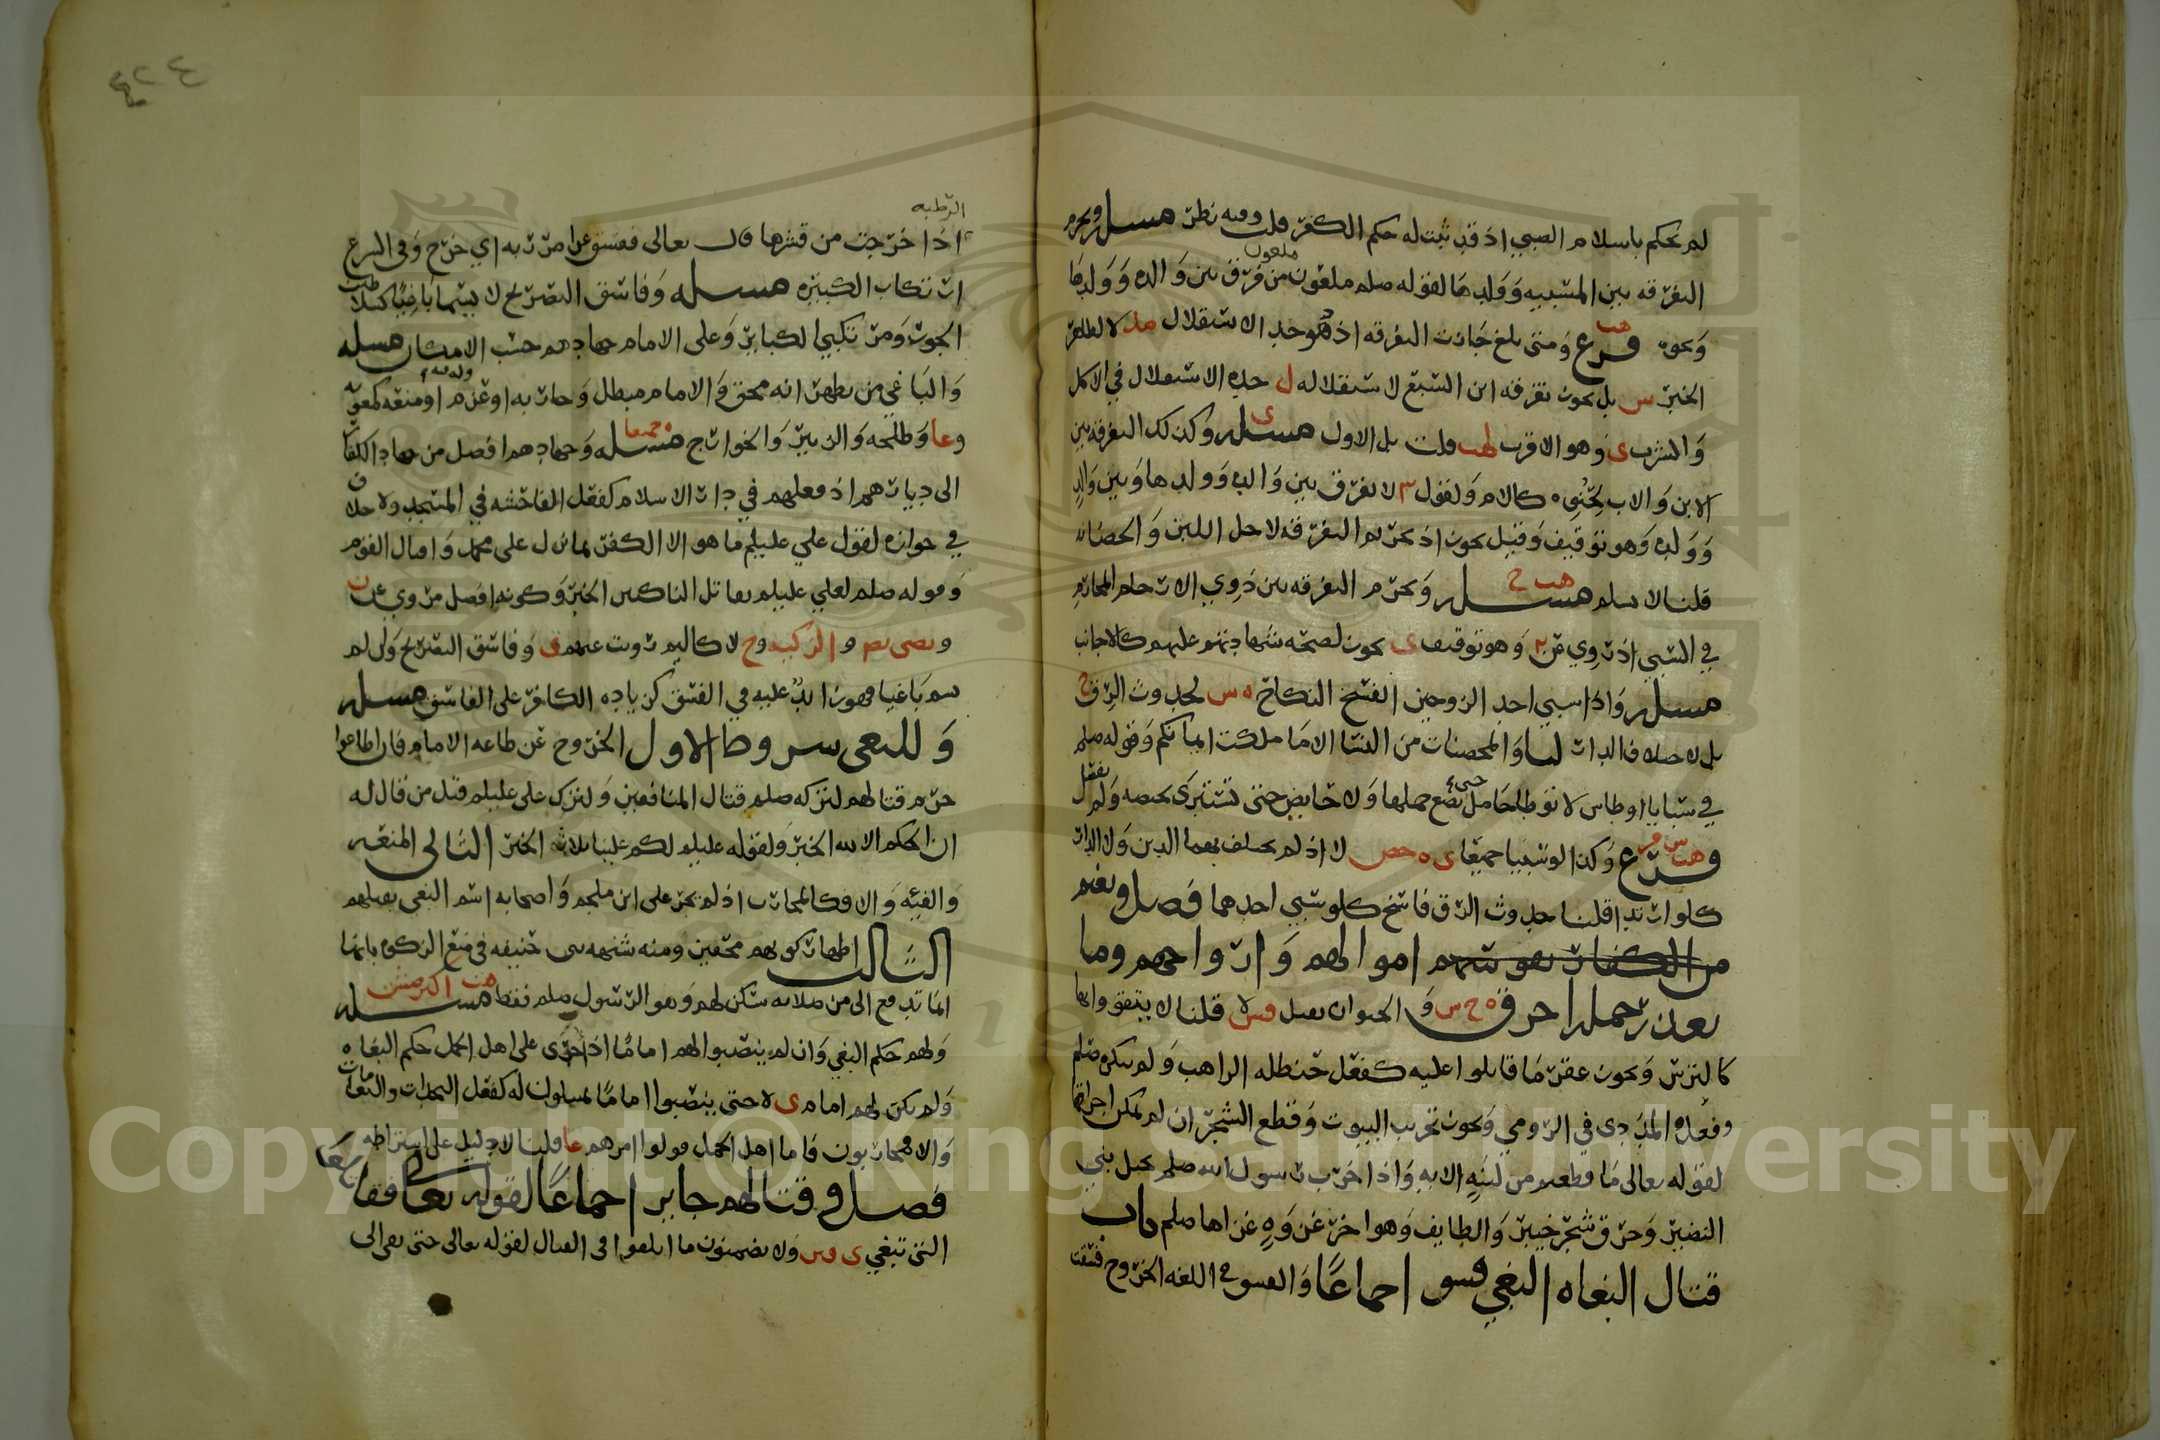 لم يحكم باسلام الصبي اذ قد ثبت له حكم الكفر قلت وفيه نظر مسله ويحرم
التفرقه بين المسبيه وولدها لقوله صلم ملعون من فرق بين والده وولدها
ونحوه فرع ومتى بلغ جازت التفرقه اذ هو حد الاستقلال لظاهر
الخبر س بل يجوز تفرقه ابن السبع لاستقلاله ل حده الاستقلال في الاكل
والشرب ى وهو الاقرب قلت بل الاول مسله وكذلك التفرقه بين
الابن والاب كالام ولقول لا تفرق بين والده وولدها وبين والد
وولده وهو توقيف وقيل يجوز اذ تحريم التفرقه لاجل اللبن والحضانه
قلنا لا نسلم مسله هب ح ويحرم التفرقه بين ذوي الارحام المحارم
في السبي اذ روي عن وهو توقيف ى يجوز لصحه شهادتهم عليهم كالاجانب
مسله واذا سبي احد الزوجين انفسخ النكاح ه س لحدوث الرق ح
بل لاختلاف الدار لنا والمحصنات من النسا الا ما ملكت ايمانكم وقوله صلم
في سبايا اوطاس لا توطا حامل حتى تضع حملها ولا حايض حتى تستبرى بحيضه ولم يفصل
فرع وكذا لو سبيا جميعا ى ه حص لا اذ لم يختلف بهما الدين ولا الدار
كلو ارتدا قلنا حدوث الرق فاسخ كلو سبي احدهما فصل ويغنم
من الكفار نفوسهم اموالهم وارواحهم وما
تعذر حمله احرق ه ح س والحيوان يقتل قلنا لا ينتفعوا بها
كالترس ويجوز عقر ما قاتلوا عليه كفعل حنظله الراهب ولم ينكره صلم
وفعله المددي في الرومي ويجوز تخريب البيوت وقطع الشجر ان لم يمكن احرازها
لقوله تعالى ما قطعتم من لينه الايه واذ اخرب رسول الله صلم نخل بني
النضير وحرق شجر خيبر والطايف وهو اخر غزوه غزاها صلم باب
قتال البغاه البغي فسق اجماعا والفسق في اللغه الخروج فسقت
الرطبه
اذا خرجت من قشرها قال تعالى ففسق عن امر ربه اي خرج وفي الشرع
ارتكاب الكبيره مسله وفاسق التصريح لا سيما باغيا
الجور ومرتكبي الكباير وعلى الامام جهادهم حسب الامكان مسله
والباغي من يظهر انه محق والامام مبطل وحاربه او عزم او منعه كمعويه
وعا وطلحه والزبير والخوارج مسله جميعا وجهادهم افضل من جهاد الكفار
الى ديارهم اذ فعلهم في دار الاسلام كفعل الفاحشه في المسجد ولا خلاف
في جوازه لقول علي عليلم ما هو الا الكفر بما نزل على محمد او قتال القوم
وقوله صلم لعلي عليلم تقاتل الناكثين الخبر وكونه افضل مروي عن
لا كاليم رويت عنهم ق وفاسق التصريح ولي لم
يسم باغيا فهو زايد عليه في الفسق كزياده الكافر على الفاسق مسله
وللبغي شروط الاول الخروج عن طاعه الامام فان اطاعوا
حرم قتالهم لتركه صلم قتال المنافقين ولترك علي عليلم قتل من قال له
ان الحكم الا لله الخبر ولقوله عليلم لكم علينا ثلاث الخبر الثاني المنعه
والفيه والا فكالمحارب اذ لم يجر على ابن ملجم واصحابه اسم البغي بفعلهم
الثالث اظهار كونهم محقين ومنه شبهه بني حنيفه في منع الزكوه بانها
انما تدفع الى من صلاته سكن لهم وهو الرسول صلم فقط مسله هب اكثر
ولهم حكم البغي وان لم ينصبوا لهم اماما اذ اجرى على اهل الجمل حكم البغاه
ولم يكن لهم امام ى لا حتى ينصبوا اماما يميلون له كفعل
والا فمحاربون فاما اهل الجمل فولوا امرهم عا قلنا لا دليل على اشتراطه
فصل وقتالهم جايز اجماعا لقوله تعالى فقاتلوا
التي تبغي ى ولا يضمنون ما اتلفوا في القتال لقوله تعالى حتى تفي الى
Copyright © King Saud University